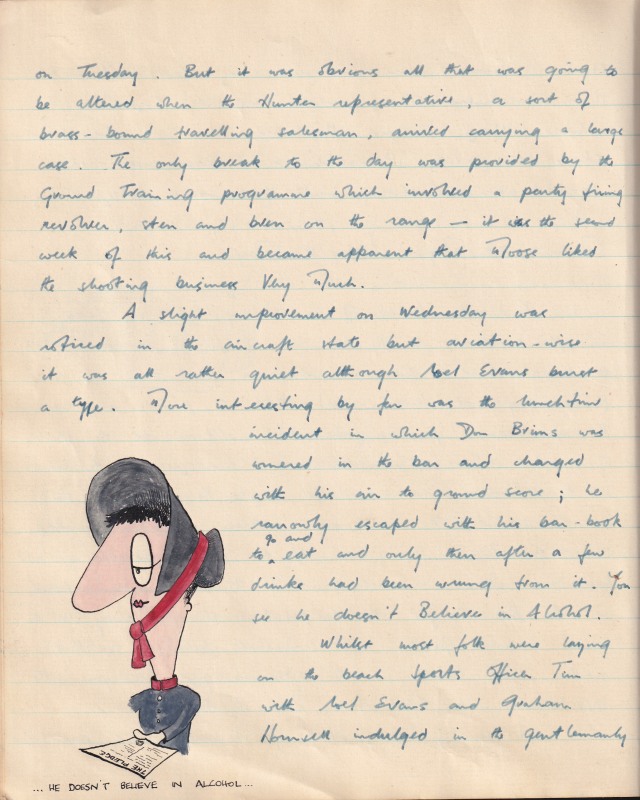 on Tuesday. But it was obvious all that was going to
be altered when the Hunter representative, a sort of
brass-bound travelling salesman, arrived carrying a large
case. The only break to the day was provided by the
Ground Training programme which involved a party firing
revolver, sten and bren on the range — it was the second
week of this and became apparent that Moose liked
the shooting business Very Much.
A slight improvement on Wednesday was
noticed in the aircraft state but aviation-wise
it was all rather quiet although Evans burst
a tyre. More interesting by far was the lunchtime
incident in which Don Brims was
cornered in the bar and charged
with his air to ground score; he
narrowly escaped with his bar-book
go and
to eat and only then after a few
drinks had been wrung from it. You
see he doesn't Believe in Alcohol.
Whilst most folk were laying
on the beach Sports Officer Tim
with Evans and Graham
indulged in the gentlemanly
THE PLEDGE
... HE DOESN'T BELIEVE IN ALCOHOL ...